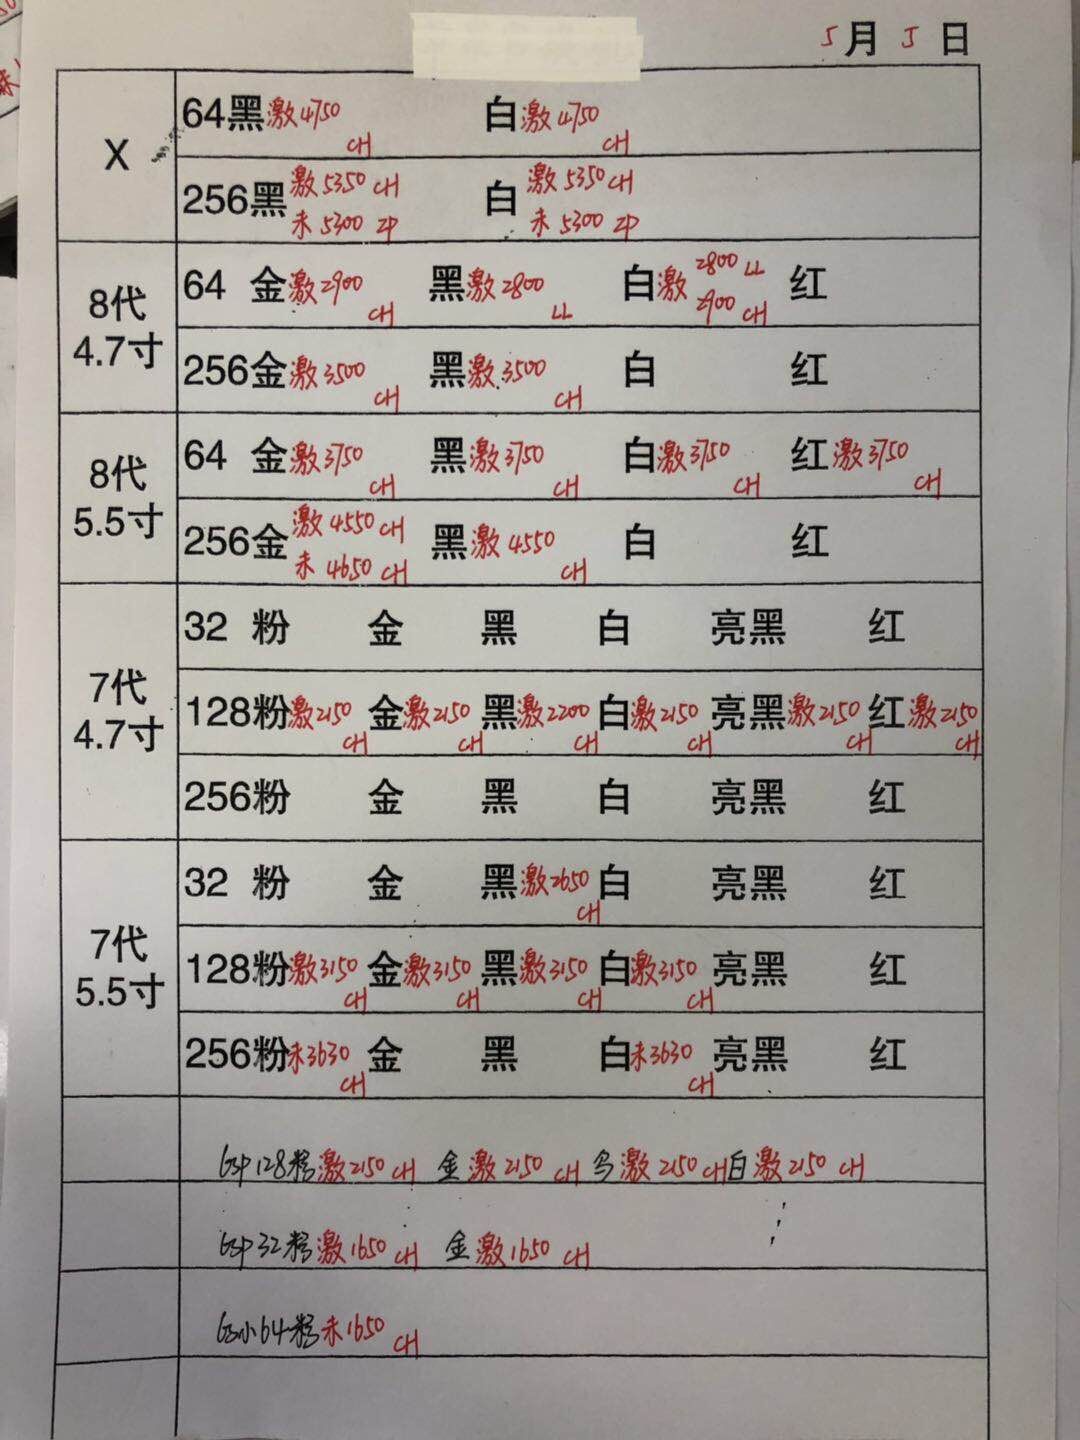 5月5日
X
64黑激4750 CH 白激4750 CH
256黑激5350 CH 白激5350 CH
未5300 ZP 未5300 ZP
8代
4.7寸
64 金激2900 CH 黑激2800 LL 白激2800 LL 2900 CH 红
256金激3500 CH 黑激3500 CH 白 红
8代
5.5寸
64 金激3750 CH 黑激3750 CH 白激3750 CH 红激3750 CH
256金激4550 CH 黑激4550 CH 白 红
未4650 CH
7代
4.7寸
32 粉 金 黑 白 亮黑 红
128粉激2150 CH 金激2150 CH 黑激2200 CH 白激2150 CH 亮黑激2150 CH 红激2150 CH
256粉 金 黑 白 亮黑 红
7代
5.5寸
32 粉 金 黑激2650 CH 白 亮黑 红
128粉激3150 CH 金激3150 CH 黑激3150 CH 白激3150 CH 亮黑 红
256粉未3630 CH 金 黑 白未3630 CH 亮黑 红
6sp128粉激2150 CH 金激2150 CH 激2150 CH 白激2150 CH
6sp32粉激1650 CH 金激1650 CH
6s小64粉未1650 CH